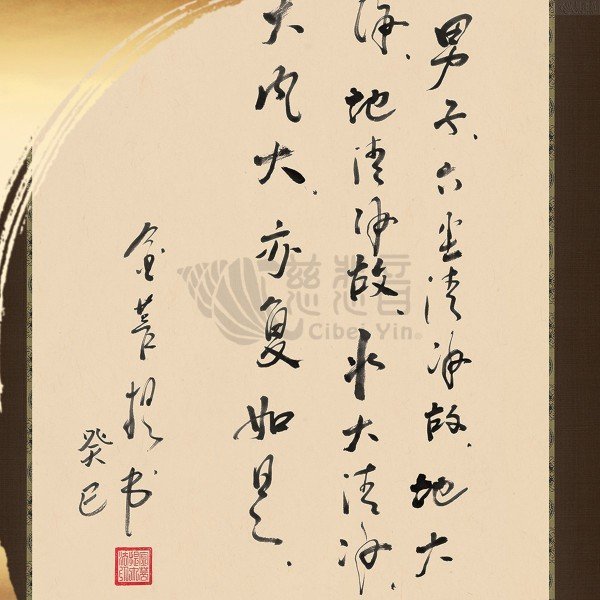 男子、六尘清净故、地大
净、地清净故、水大清净、
大风大、亦复如是、
金菩提书
癸巳
慈悲音
Cibei Yin®